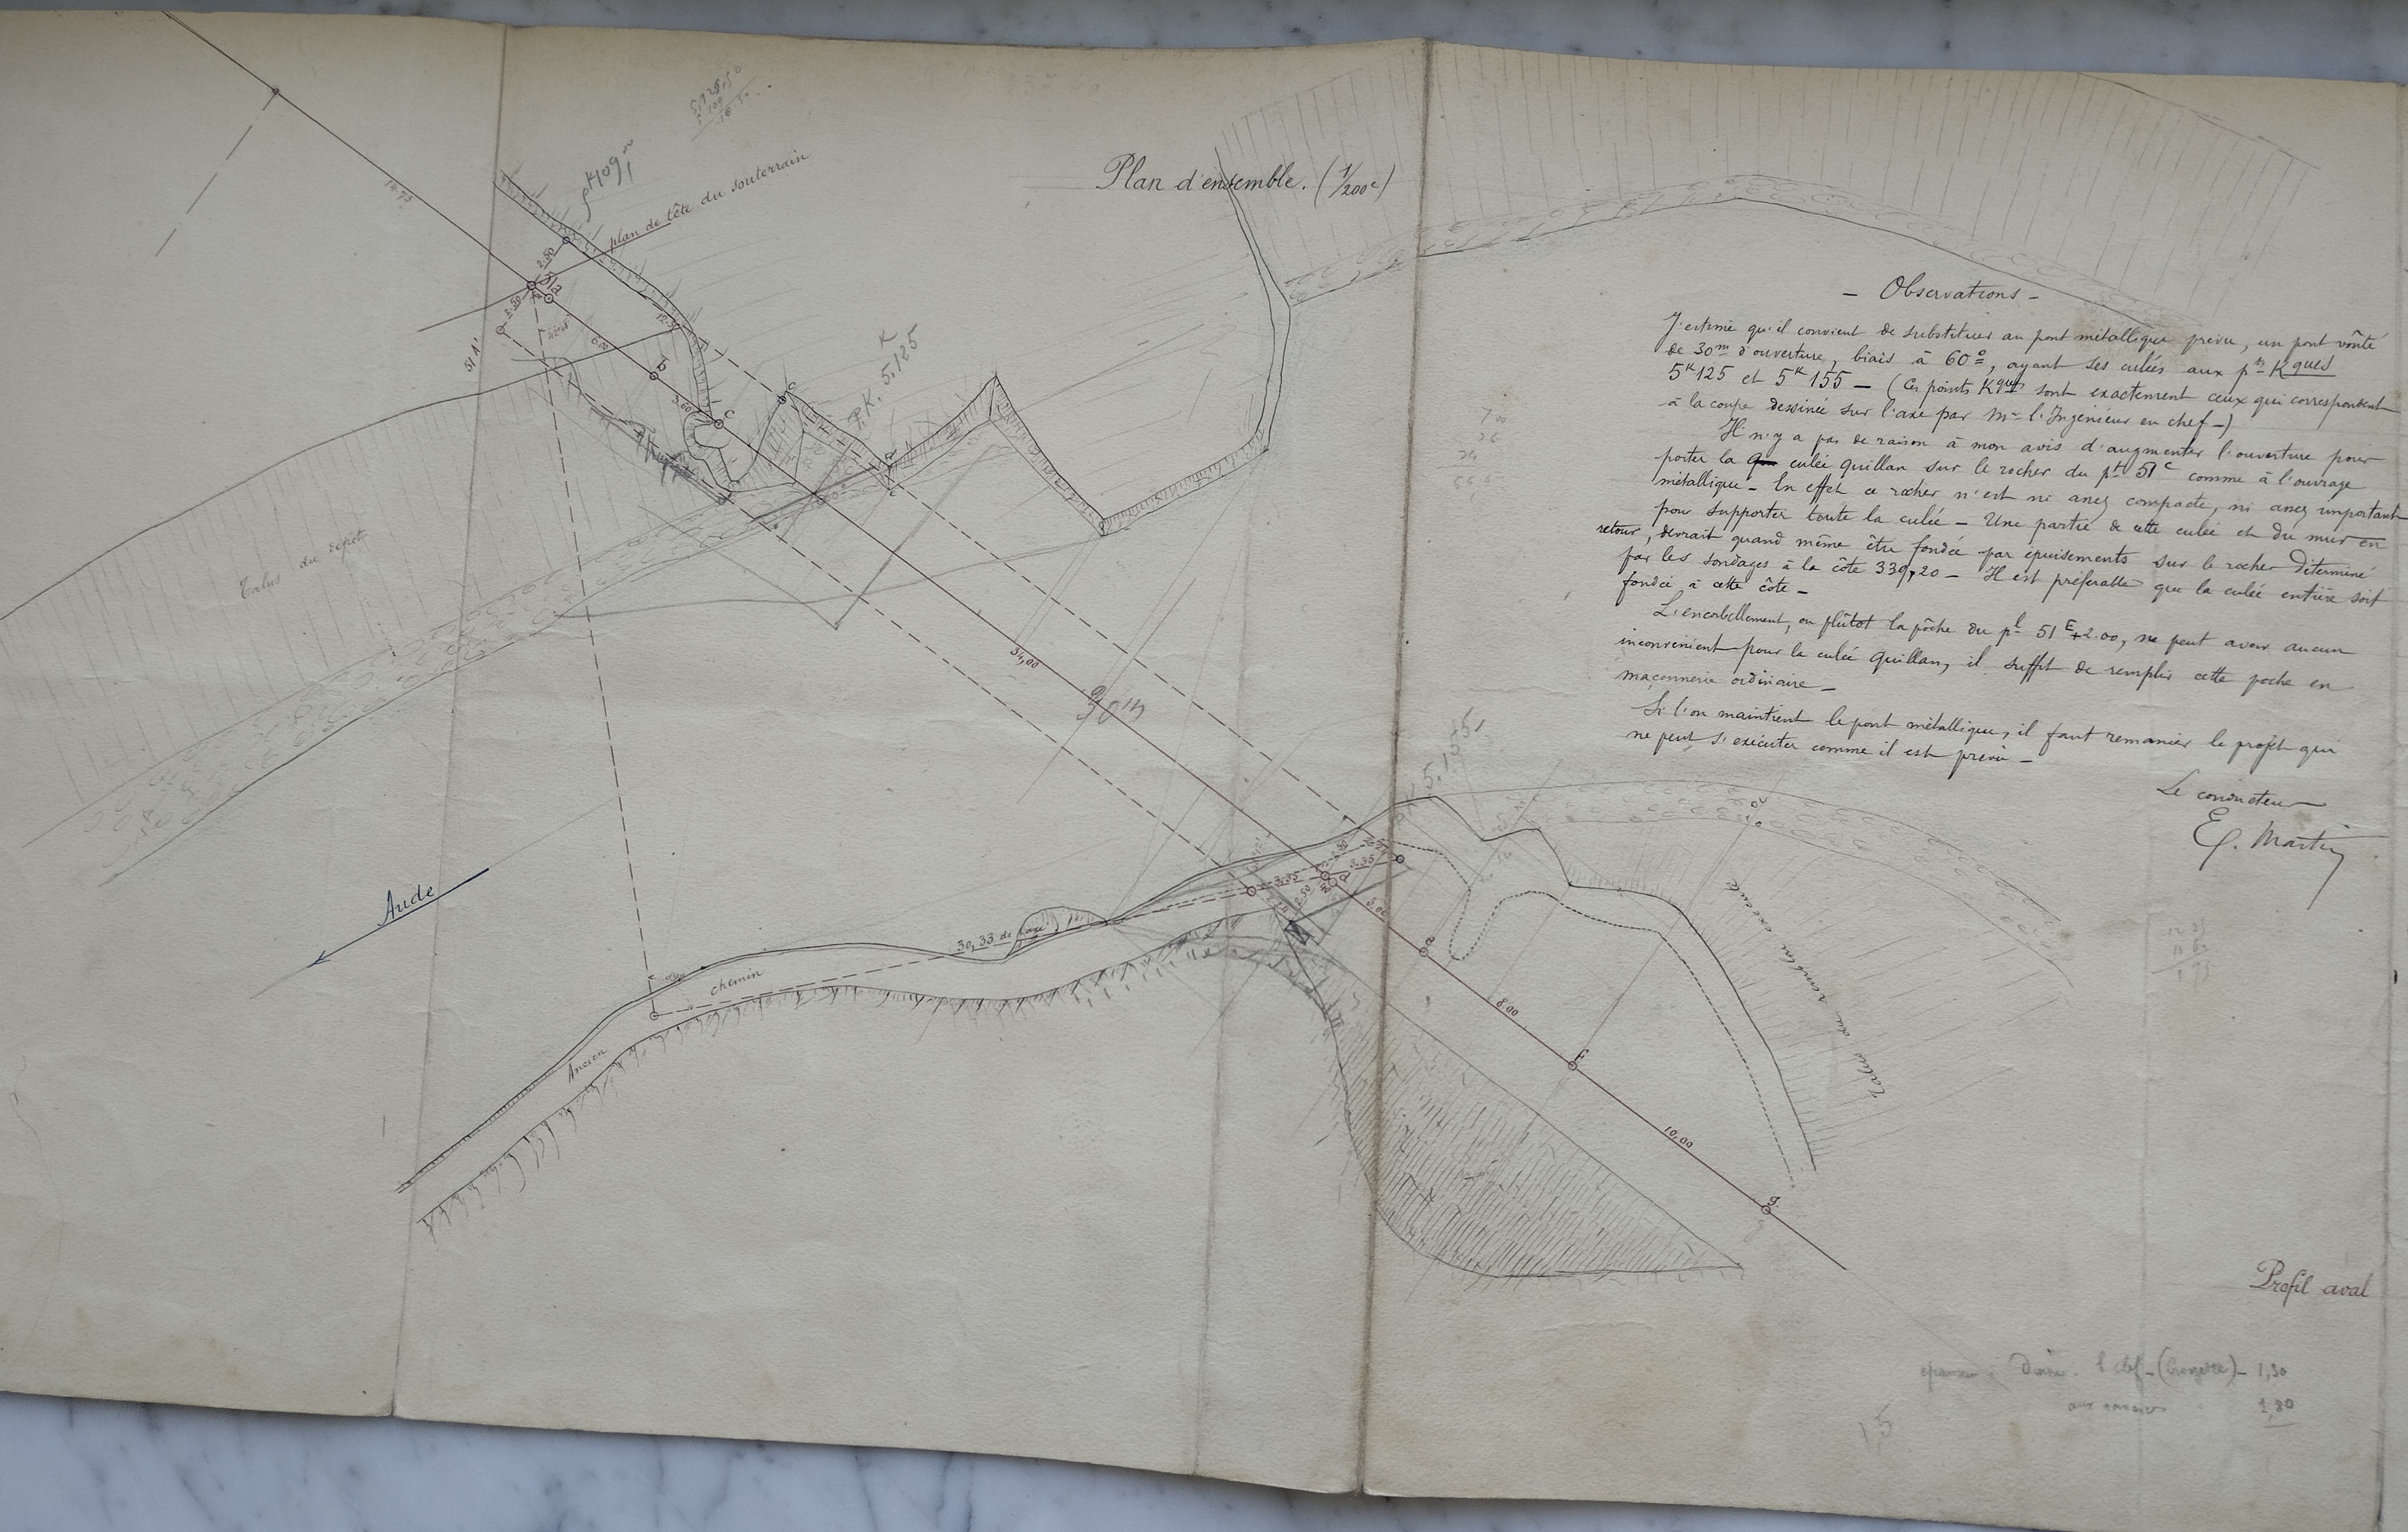 Plan d'ensemble. (1/200e)
plan de tête du souterrain
14.75
2.50
2.50
51 A'
6.00
b
3.60
c
P.K. 5,125
Talus du dépôt
34,00
30m
Aude
30,33 de long
chemin
Ancien
3.35
3.35
2.50
2.50
3.00
e
8.00
f
10,00
g
Talus du remblai exécuté
- Observations -
J'estime qu'il convient de substituer au pont métallique prévu, un pont voûté
de 30m d'ouverture, biais à 60°, ayant ses culées aux pts Kques
5K125 et 5K155 – (Ces points Kques sont exactement ceux qui correspondent
à la coupe dessinée sur l'axe par Mr l'Ingénieur en chef –)
Il n'y a pas de raison à mon avis d'augmenter l'ouverture pour
porter la culée Quillan sur le rocher du pt 51c comme à l'ouvrage
métallique – En effet ce rocher n'est ni assez compacte, ni assez important
pour supporter toute la culée – Une partie de cette culée et du mur en
retour, devrait quand même être fondée par épuisements sur le rocher déterminé
par les sondages à la côte 339,20 – Il est préférable que la culée entière soit
fondée à cette côte –
L'encorbellement, ou plûtot la pôche du pt 51E+2.00, ne peut avoir aucun
inconvénient pour la culée Quillan, il suffit de remplir cette poche en
maçonnerie ordinaire –
Si l'on maintient le pont métallique, il faut remanier le projet qui
ne peut s'exécuter comme il est prévu –
Le conducteur
E. Martin
Profil aval
1,30
1,80
15